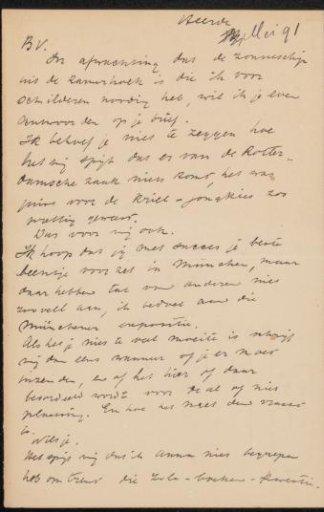 Heerde
Mei 91
B.V.
In afwachting dat de zonneschijn
uit de kamerhoek is die ik voor
schilderen noodig heb, wil ik je even
antwoorden op je brief.
Ik behoef je niet te zeggen hoe
het mij spijt dat er van de Rotter-
damsche zaak niets komt, het was
juist voor de kriel-jongkies zoo
prettig geweest.
Dus voor mij ook.
Ik hoop dat jij met succes je beste
beentje voorzet in München, maar
daar hebben tal van anderen niet
zooveel aan, ik bedoel aan die
Münchener expositie.
Als het je niet te veel moeite is schrijf
mij dan eens wanneer of je er moet
inzenden, en of het hier of daar
beoordeeld wordt voor de al of niet
plaatsing. En hoe het met den
is.
Het spijt mij dat ik Anna niet begrepen
heb omtrent die Zola-boeken-kwestie.